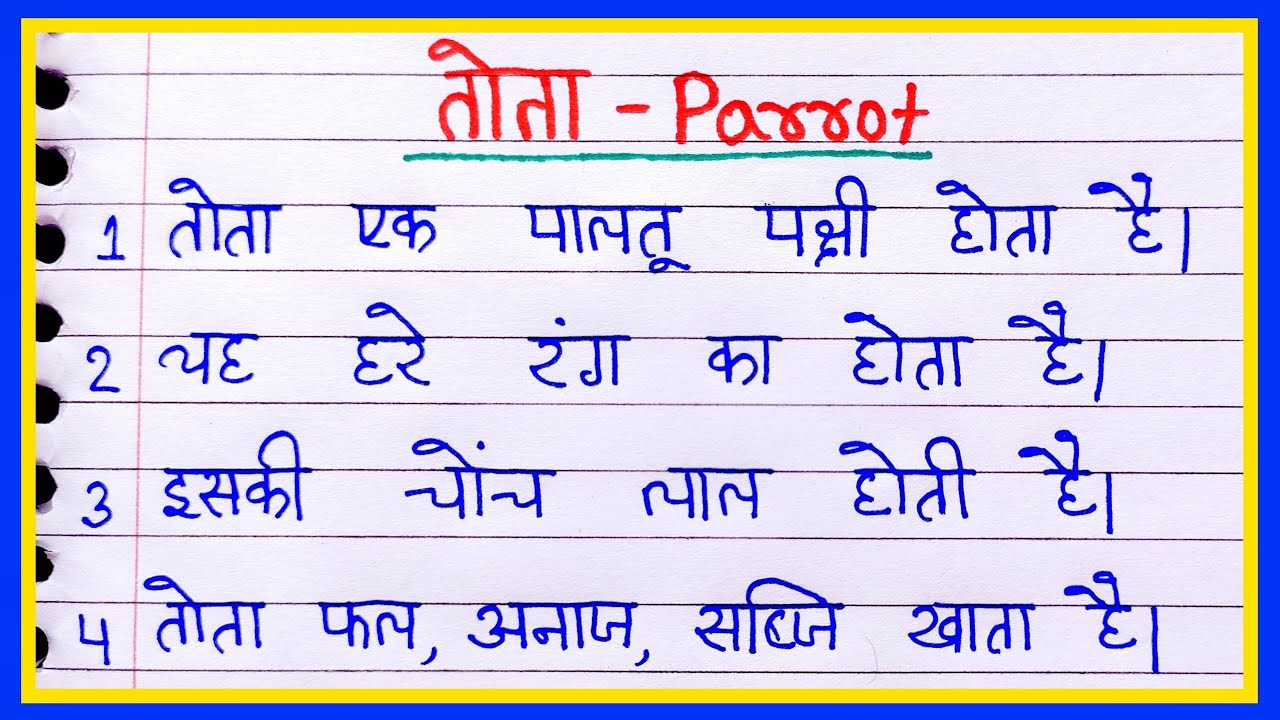 तोता - Parrot
1 तोता एक पालतू पक्षी होता है।
2 यह हरे रंग का होता है।
3 इसकी चोंच लाल होती है।
4 तोता फल, अनाज, सब्जि खाता है।